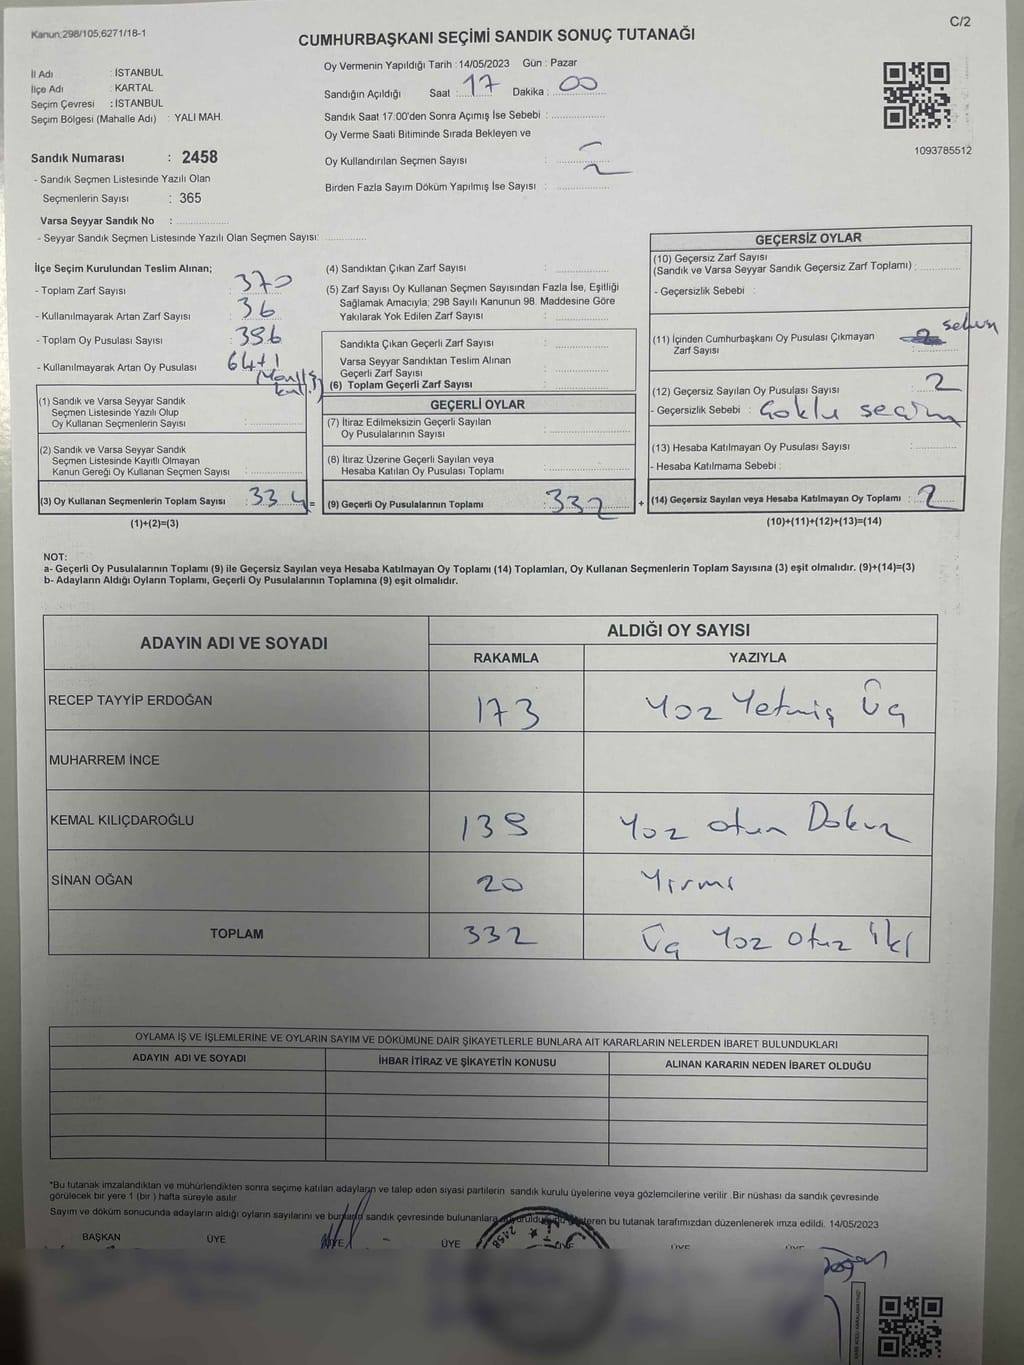 Kanun;298/105,6271/18-1
C/2
CUMHURBAŞKANI SEÇİMİ SANDIK SONUÇ TUTANAĞI
İl Adı : İSTANBUL
İlçe Adı : KARTAL
Seçim Çevresi : İSTANBUL
Seçim Bölgesi (Mahalle Adı) : YALI MAH.
Sandık Numarası : 2458
- Sandık Seçmen Listesinde Yazılı Olan
Seçmenlerin Sayısı : 365
Varsa Seyyar Sandık No :
- Seyyar Sandık Seçmen Listesinde Yazılı Olan Seçmen Sayısı:
Oy Vermenin Yapıldığı Tarih : 14/05/2023 Gün : Pazar
Sandığın Açıldığı Saat : 17 Dakika : 00
Sandık Saat 17:00'den Sonra Açımış İse Sebebi :
Oy Verme Saati Bitiminde Sırada Bekleyen ve
Oy Kullandırılan Seçmen Sayısı :
Birden Fazla Sayım Döküm Yapılmış İse Sayısı :
1093785512
İlçe Seçim Kurulundan Teslim Alınan;
- Toplam Zarf Sayısı : 370
- Kullanılmayarak Artan Zarf Sayısı : 36
- Toplam Oy Pusulası Sayısı : 396
- Kullanılmayarak Artan Oy Pusulası : 64+1
(1) Sandık ve Varsa Seyyar Sandık
Seçmen Listesinde Yazılı Olup
Oy Kullanan Seçmenlerin Sayısı :
(2) Sandık ve Varsa Seyyar Sandık
Seçmen Listesinde Kayıtlı Olmayan
Kanun Gereği Oy Kullanan Seçmen Sayısı :
(3) Oy Kullanan Seçmenlerin Toplam Sayısı : 334 =
(1)+(2)=(3)
(4) Sandıktan Çıkan Zarf Sayısı :
(5) Zarf Sayısı Oy Kullanan Seçmen Sayısından Fazla İse, Eşitliği
Sağlamak Amacıyla; 298 Sayılı Kanunun 98. Maddesine Göre
Yakılarak Yok Edilen Zarf Sayısı :
Sandıkta Çıkan Geçerli Zarf Sayısı :
Varsa Seyyar Sandıktan Teslim Alınan
Geçerli Zarf Sayısı :
(6) Toplam Geçerli Zarf Sayısı :
GEÇERLİ OYLAR
(7) İtiraz Edilmeksizin Geçerli Sayılan
Oy Pusulalarının Sayısı :
(8) İtiraz Üzerine Geçerli Sayılan veya
Hesaba Katılan Oy Pusulası Toplamı :
(9) Geçerli Oy Pusulalarının Toplamı : 332 +
GEÇERSİZ OYLAR
(10) Geçersiz Zarf Sayısı
(Sandık ve Varsa Seyyar Sandık Geçersiz Zarf Toplamı) :
- Geçersizlik Sebebi :
(11) İçinden Cumhurbaşkanı Oy Pusulası Çıkmayan
Zarf Sayısı :
(12) Geçersiz Sayılan Oy Pusulası Sayısı : 2
- Geçersizlik Sebebi : Çoklu seçim
(13) Hesaba Katılmayan Oy Pusulası Sayısı :
- Hesaba Katılmama Sebebi :
(14) Geçersiz Sayılan veya Hesaba Katılmayan Oy Toplamı : 2
(10)+(11)+(12)+(13)=(14)
NOT:
a- Geçerli Oy Pusulalarının Toplamı (9) ile Geçersiz Sayılan veya Hesaba Katılmayan Oy Toplamı (14) Toplamları, Oy Kullanan Seçmenlerin Toplam Sayısına (3) eşit olmalıdır. (9)+(14)=(3)
b- Adayların Aldığı Oyların Toplamı, Geçerli Oy Pusulalarının Toplamına (9) eşit olmalıdır.
ADAYIN ADI VE SOYADI
ALDIĞI OY SAYISI
RAKAMLA YAZIYLA
RECEP TAYYİP ERDOĞAN 173 Yüz Yetmiş Üç
MUHARREM İNCE
KEMAL KILIÇDAROĞLU 139 Yüz otuz Dokuz
SİNAN OĞAN 20 Yirmi
TOPLAM 332 Üç Yüz otuz iki
OYLAMA İŞ VE İŞLEMLERİNE VE OYLARIN SAYIM VE DÖKÜMÜNE DAİR ŞİKAYETLERLE BUNLARA AİT KARARLARIN NELERDEN İBARET BULUNDUKLARI
ADAYIN ADI VE SOYADI İHBAR İTİRAZ VE ŞİKAYETİN KONUSU ALINAN KARARIN NEDEN İBARET OLDUĞU
*Bu tutanak imzalandıktan ve mühürlendikten sonra seçime katılan adayların ve talep eden siyasi partilerin sandık kurulu üyelerine veya gözlemcilerine verilir .Bir nüshası da sandık çevresinde
görülecek bir yere 1 (bir ) hafta süreyle asılır.
Sayım ve döküm sonucunda adayların aldığı oyların sayılarını ve bunların sandık çevresinde bulunanlara gösteren bu tutanak tarafımızdan düzenlenerek imza edildi. 14/05/2023
BAŞKAN ÜYE ÜYE ÜYE ÜYE ÜYE